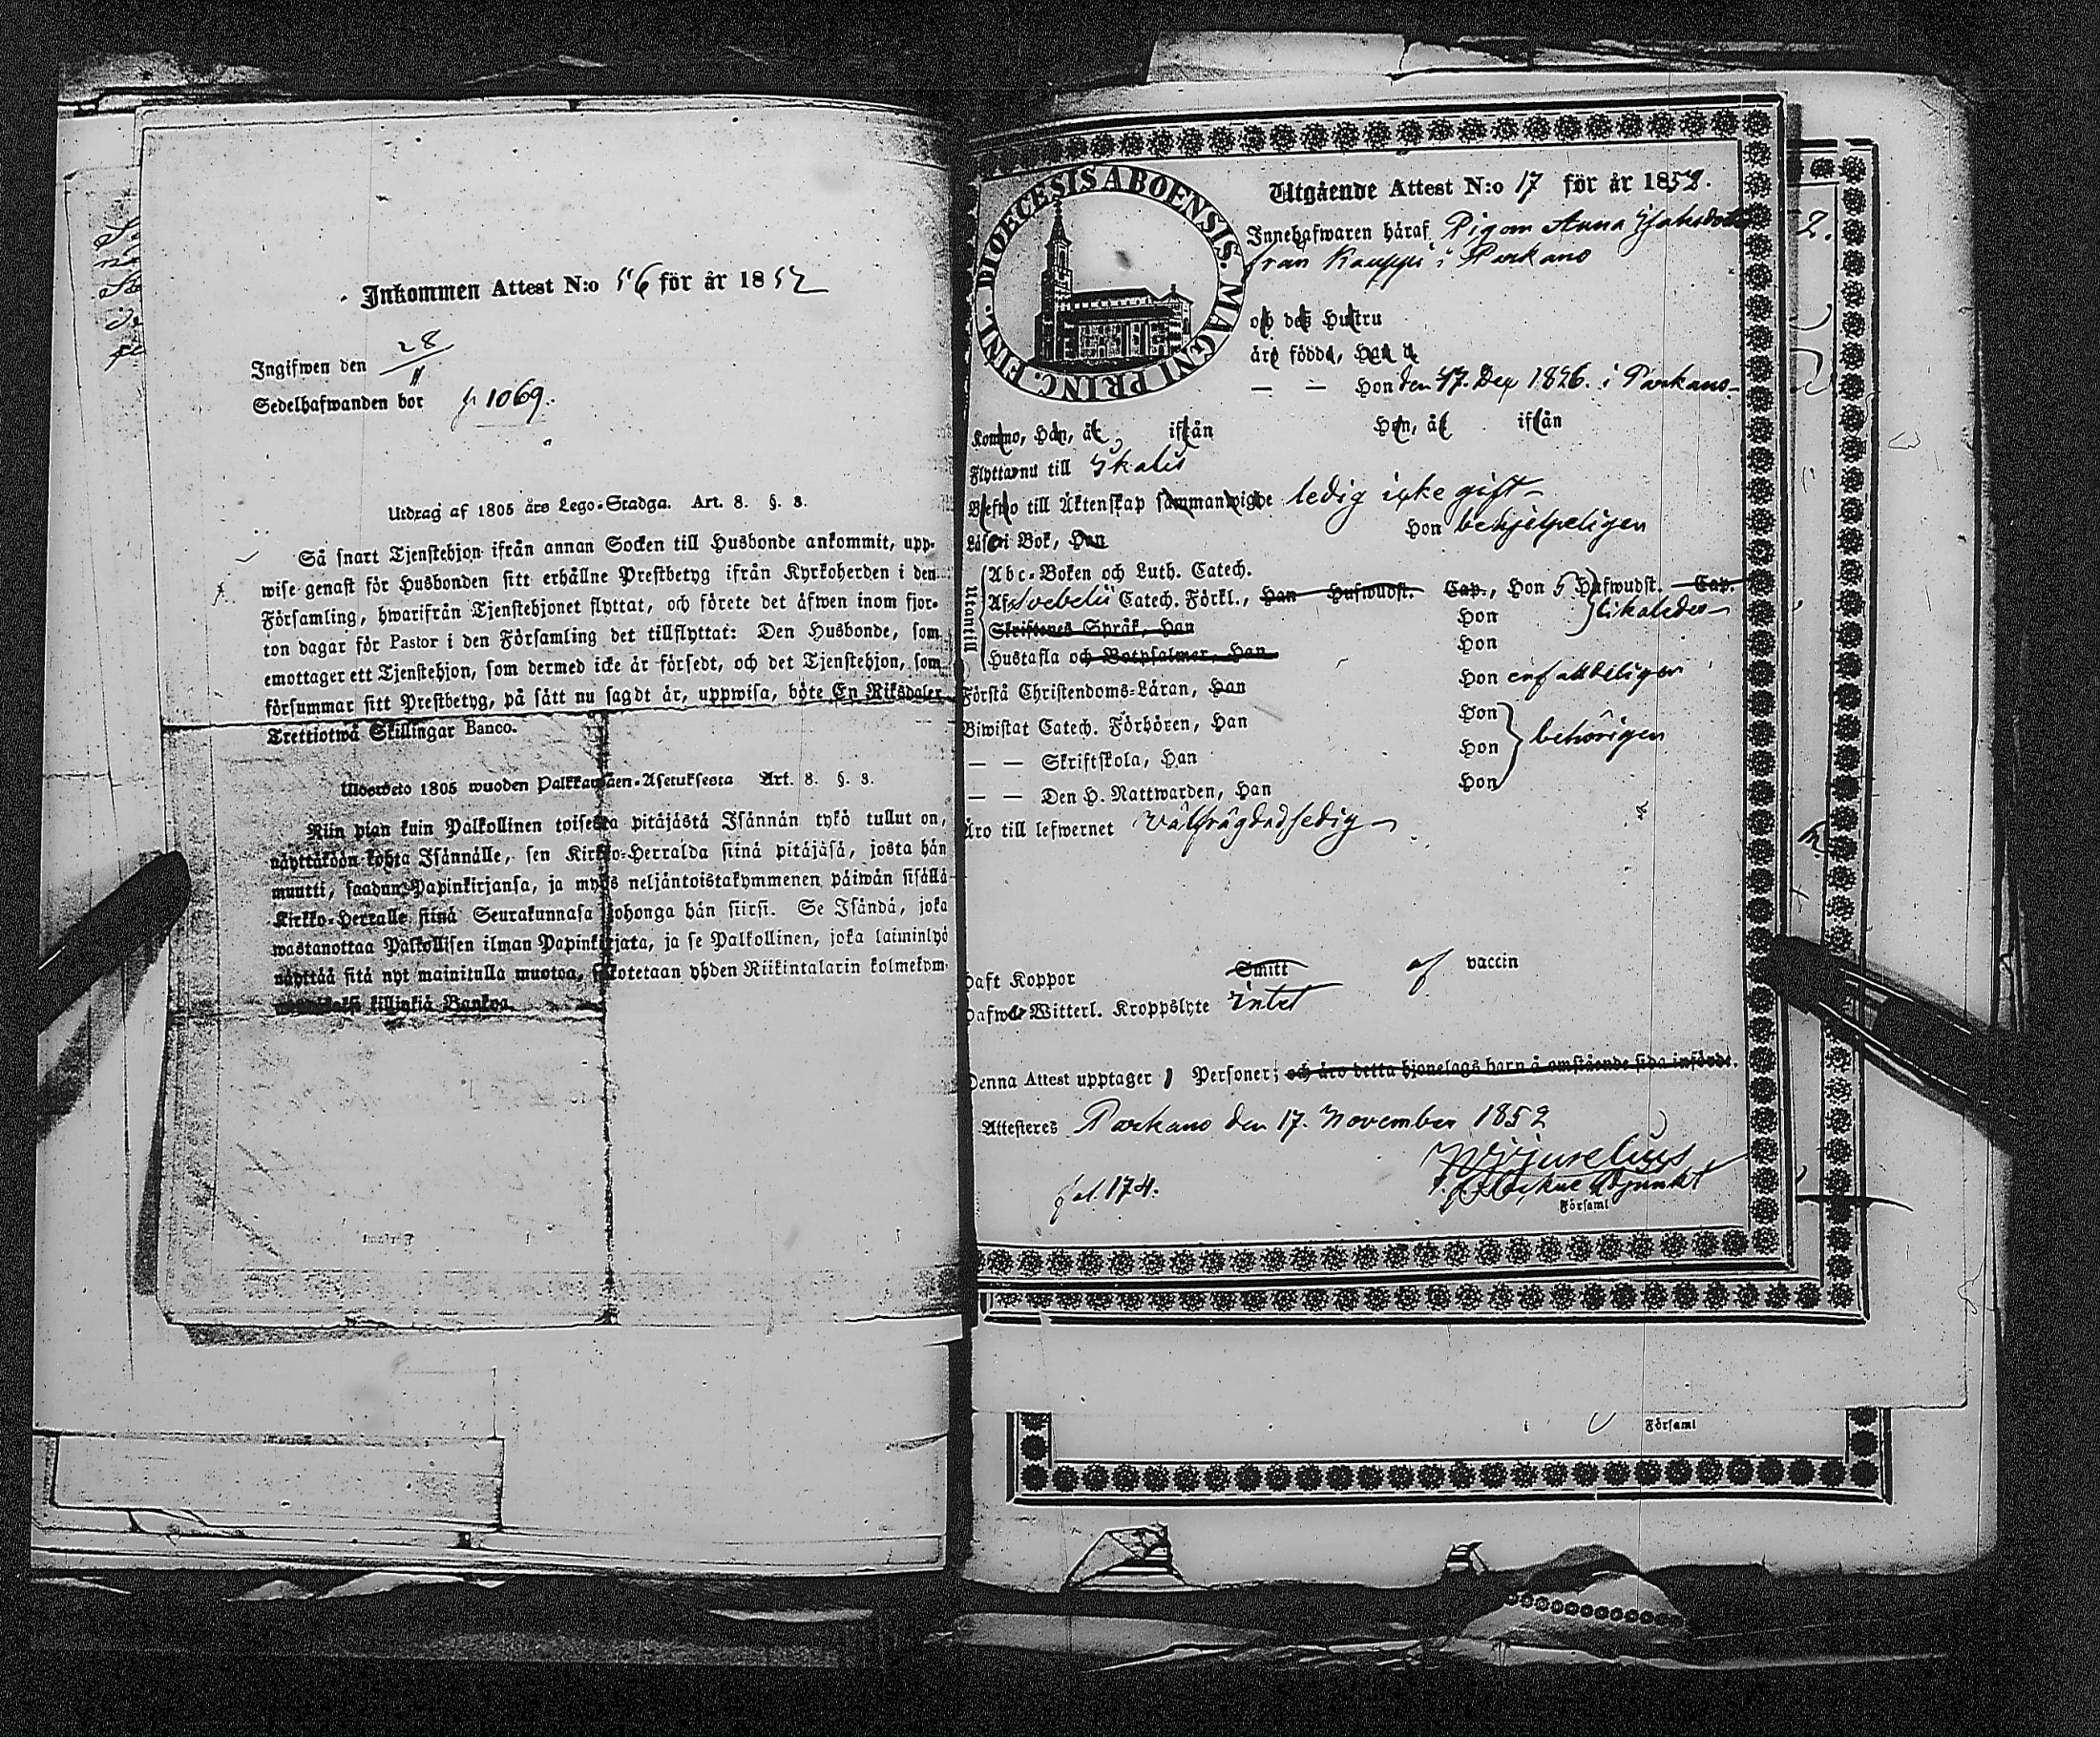 Inkommen Attest N:o 56 för år 1852
Ingifwen den 28/11
Sedelhafwanden bor p 1069.
Utdrag af 1805 års Lego-Stadga. Art. 8. §. 3.
Så snart Tjenstehjon ifrån annan Socken till Husbonde ankommit, upp-
wise genast för Husbonden sitt erhållne Prestbetyg ifrån Kyrkoherden i den
Församling, hwarifrån Tjenstehjonet flyttat, och förete det äfwen inom fjor-
ton dagar för Pastor i den Församling det tillflyttat: Den Husbonde, som
emottager ett Tjenstehjon, som dermed icke är försedt, och det Tjenstehjon, som
försummar sitt Prestbetyg, på sätt nu sagdt är, uppwisa, böte En Riksdaler
Trettiotwå Skillingar Banco.
1805 wuoden Palkkawäen-Asetuksesta Art. 8. §. 3.
Niin pian kuin Palkollinen toisesta pitäjästä Isännän tykö tullut on,
näyttäköön kohta Isännälle, sen Kirkko-Herralda siinä pitäjäsä, josta hän
muutti, saadun Papinkirjansa, ja myös neljäntoistakymmenen päiwän sisällä
Kirkko-Herralle siinä Seurakunnasa johonga hän siirsi. Se Isändä, joka
wastanottaa Palkollisen ilman Papinkirjata, ja se Palkollinen, joka laiminlyö
näyttää sitä nyt mainitulla muotoa, sakotetaan yhden Riikintalarin kolmekym-
killinkiä Bankoa.
DIOECESIS ABOENSIS. MAGNI PRINC. FINL.
Utgående Attest N:o 17 för år 1852.
Innehafwaren häraf Pigan Anna
från Kauppi i Parkano
och des Hustru
äro födda, Han d
— — Hon den 17. Dec 1826. i Parkano
Kommo, Han, år ifrån Hon, år ifrån
Flyttar nu till Ikalis
Blefwo till Äktenskap sammanwigde ledig icke gift
Läser i Bok, Han Hon behjelpeligen
Utantill
Abc-Boken och Luth. Catech.
Af Svebelii Catech. Förkl., Han Hufwudst. Cap., Hon 5 Hufwudst. Cap.
Skriftenes Språk, Han Hon likaledes
Hustafla och Botpsalmer, Han Hon
Förstå Christendoms-Läran, Han Hon enfalldeligen
Biwistat Catech. Förhören, Han Hon
— — Skriftskola, Han Hon behörigen
— — Den H. Nattwarden, Han Hon
Äro till lefwernet välfrägdad sedig
Haft Koppor Smitt af vaccin
Hafwer Witterl. Kroppslyte intet
Denna Attest upptager 1 Personer; och äro detta hjonelags barn å omstående sida införde.
Attesteres Parkano den 17. November 1852
fol. 174.
Adjunkt
Församl
i Församl